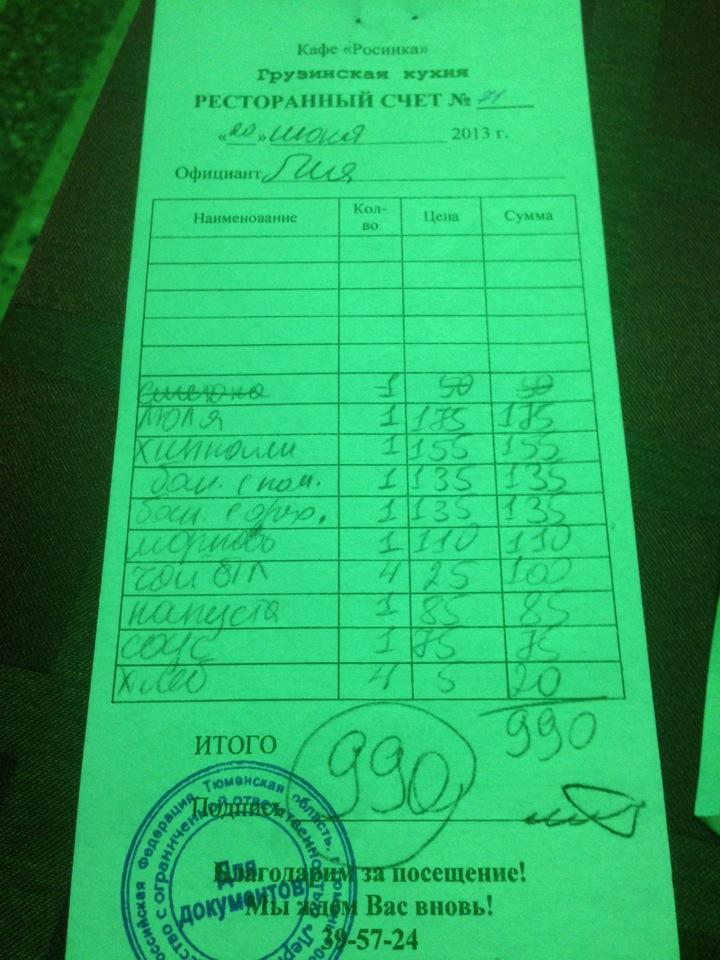 Кафе «Росинка»
Грузинская кухня
РЕСТОРАННЫЙ СЧЕТ № 71
«20» июня 2013 г.
Официант Лия
Наименование Кол-во Цена Сумма
сметана 1 50 50
люля 1 175 175
хинкали 1 155 155
бак. с пом. 1 135 135
бак. с орех. 1 135 135
морковь 1 110 110
чай б/л 4 25 100
капуста 1 85 85
соус 1 75 75
хлеб 4 5 20
990
ИТОГО 990
Подпись
Российская Федерация, Тюменская область,
Общество с ограниченной ответственностью
Для документов
Благодарим за посещение!
Мы ждем Вас вновь!
39-57-24